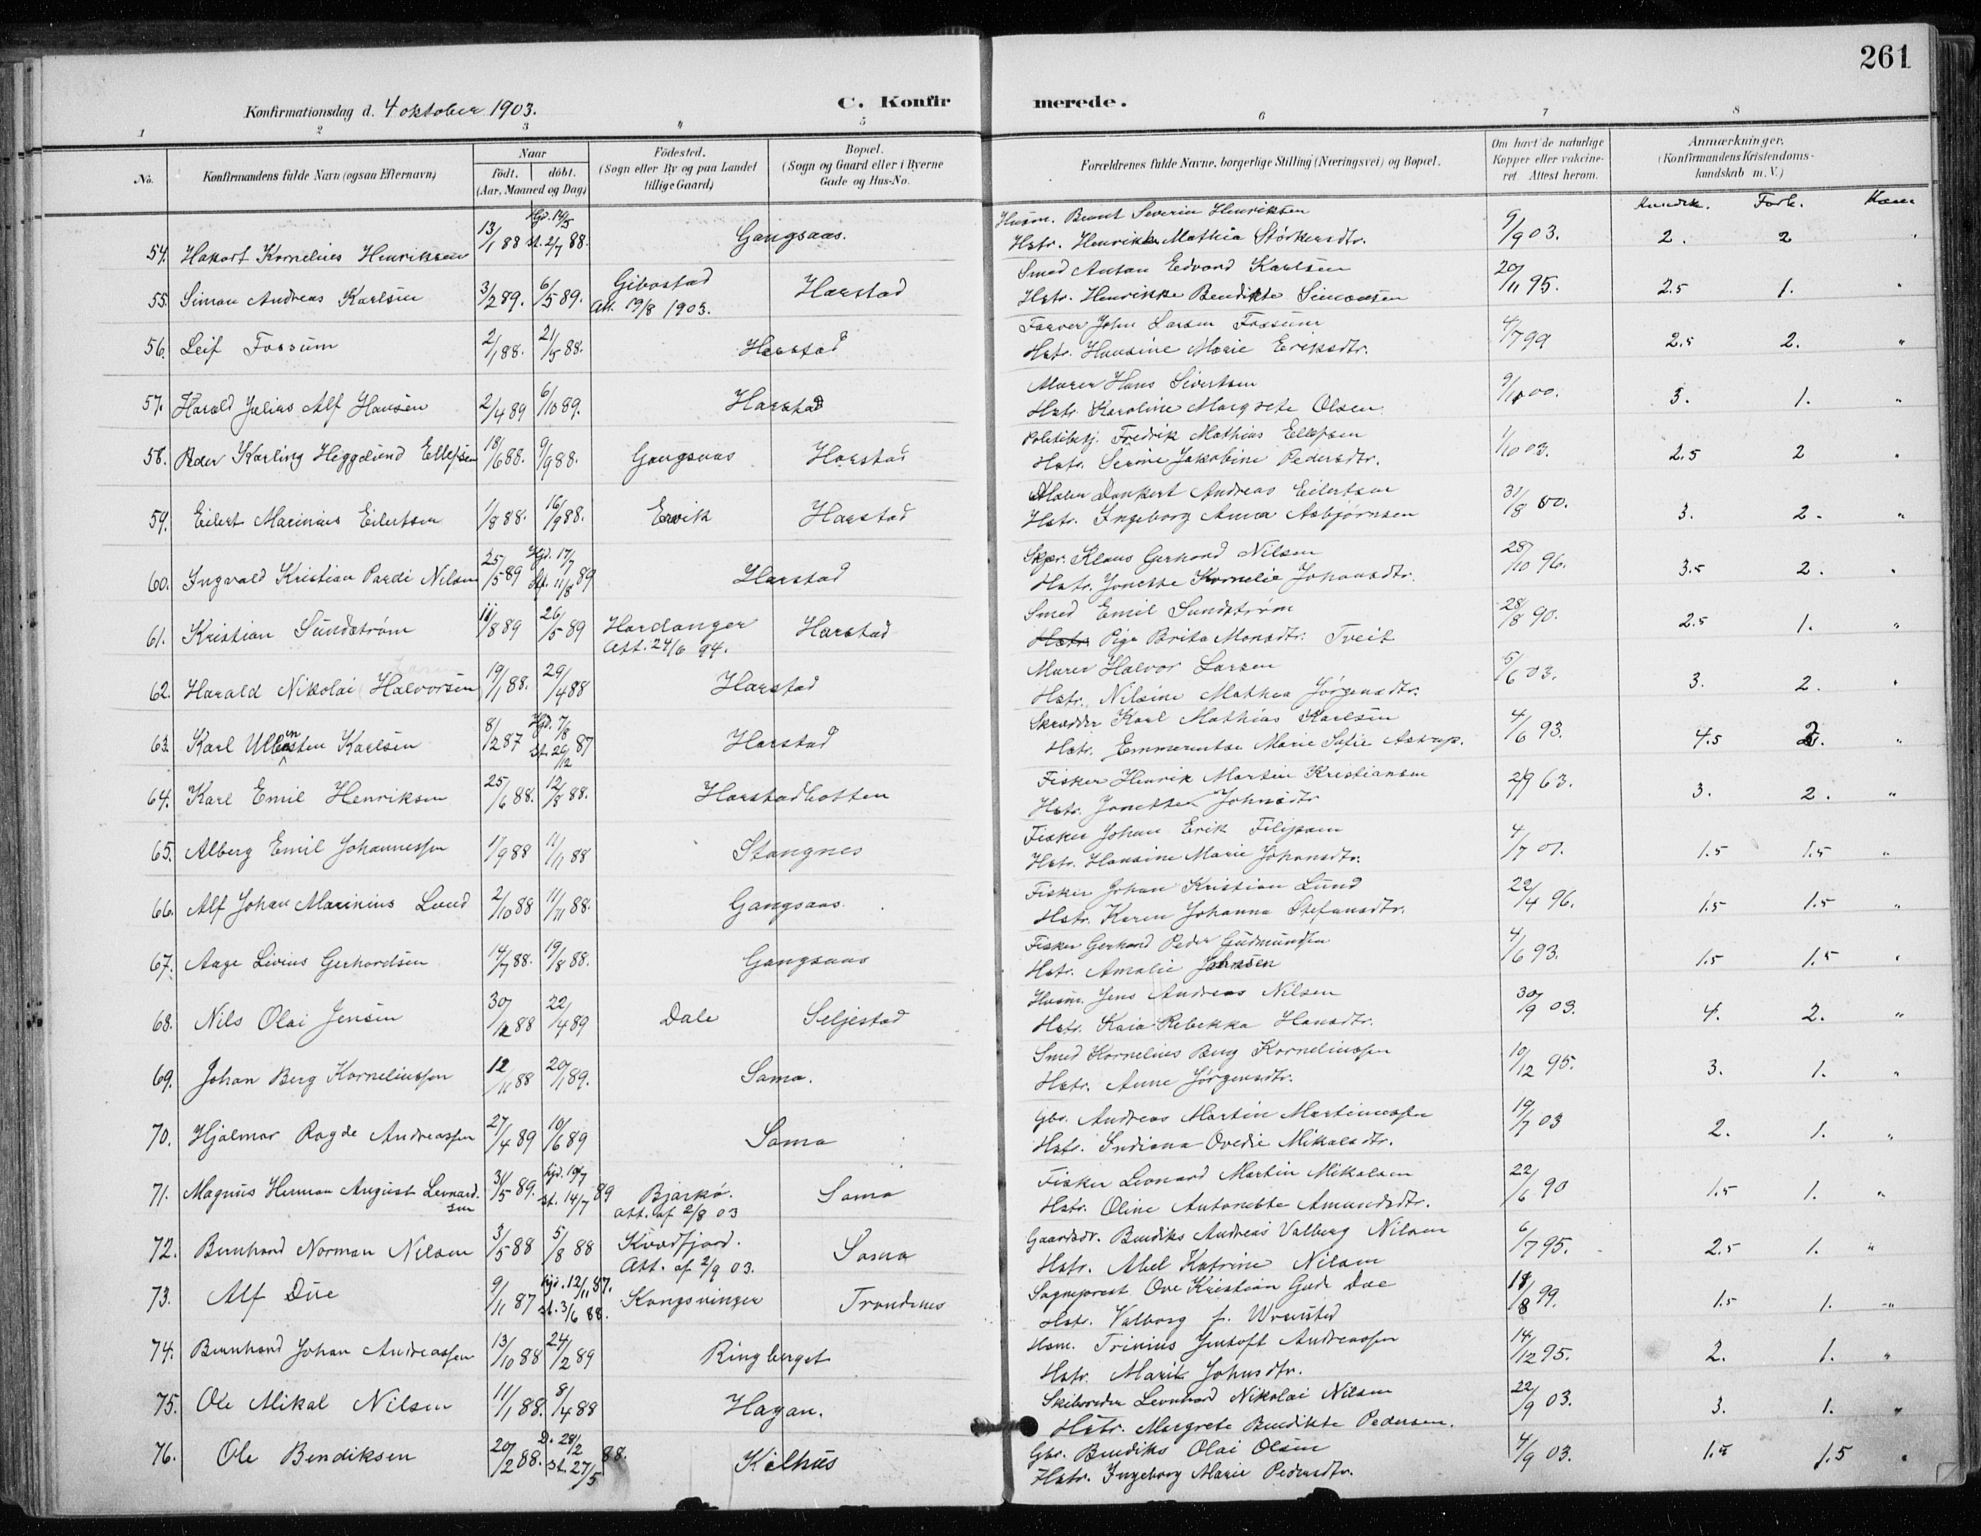 261
Konfirmationsdag d. 4 oktober 1903.
C. Konfirmerede.
1 2 3 4 5 6 7 8
No.
Konfirmandens fulde Navn (ogsaa Efternavn)
Naar
født. døbt.
(Aar, Maaned og Dag)
Fødested.
(Sogn eller By og paa Landet
tillige Gaard)
Bopæl.
(Sogn og Gaard eller i Byerne
Gade og Hus-No.
Forældrenes fulde Navne, borgerlige Stilling (Næringsvei) og Bopæl.
Om havt de naturlige
Kopper eller vakcine-
ret. Attest herom.
Anmærkninger.
(Konfirmandens Kristendoms-
kundskab m. V.)
Kundsk. Forh.
Husm. Bernt Severin Henriksen
54. Hakort Kornelius Henriksen 13/1 88 Hjd. 14/5 st. 2/7 88. Gangsaas.
Hstr. Henrikke Mathia Størkersdtr. 9/9 03. 2. 2
Smed Anton Edvard Karlsen
55. Simon Andreas Karlsen 3/2 89. 6/5 89. Gibostad Att. 19/8 1903. Harstad
Hstr. Henrikke Bendikte Simonsen 20/11 95. 2.5 1. "
Farver John Larsen Fossum
56. Leif Fossum 2/1 88. 21/5 88. Harstad
Hstr. Hansine Marie Eriksdtr. 4/7 99 2.5 2. "
Murer Hans Sivertsen
57. Harald Julius Alf Hansen 2/4 89 6/10 89. Harstad
Hstr. Karoline Margrete Olsen 9/1 00. 3. 1. "
Politibetj. Fredrik Mathias Ellefsen
58. Peder Karling Heggelund Ellefsen 18/6 88. 9/9 88. Gangsaas Harstad
Hstr. Serine Jakobine Pedersdtr. 1/10 03. 2.5 2 "
Maler Dankert Andreas Eilertsen
59. Eilert Marinius Eilertsen 1/8 88. 16/9 88. Ervik Harstad
Hstr. Ingeborg Anna Asbjørnsen 31/8 00. 3. 2. "
Skpr. Klaus Gerhard Nilsen
60. Ingvald Kristian Pardi Nilsen 25/5 89 Hjd. 17/7 St. 11/8 89 Harstad
Hstr. Jonette Kornelie Johansdtr. 28/10 96. 3.5 2. "
Smed Emil Sundstrøm
61. Kristian Sundstrøm 11/8 89 26/5 89 Hardanger Att. 24/6 94. Harstad
Hstr. Pige Brita Monsdtr. Tveit 28/8 90. 2.5 1. "
Murer Halvor Larsen
62. Harald Nikolai Halvorsen 19/1 88. 29/4 88 Harstad
Hstr. Nilsine Mathea Jørgensdtr. 5/6 03. 3. 2. "
Skrædder Karl Mathias Karlsen
63. Karl Karlsen 8/12 87 Hjd. 7/8 St. 26/12 87 Harstad
Hstr. Emmerentse Marie Sofie Astrup. 4/6 93. 4.5 2. "
Fisker Henrik Martin Kristiansen
64. Karl Emil Henriksen 25/6 88. 12/8 88. Harstadbotten
Hstr. Jonette Johnsdtr 63. 3. 2. "
Fisker Johan Erik Filipsen
65. Alberg Emil Johannessen 1/9 88 11/11 88 Stangnes
Hstr. Hansine Marie Johansdtr. 4/7 01. 1.5 1.5 "
Fisker Johan Kristian Lund
66. Alf Johan Marinius Lund 2/10 88 11/11 88. Gangsaas.
Hstr. Karen Johanna Stefansdtr. 22/4 96. 1.5 1.5 "
Fisker Gerhard Peder Gudmundsen
67. Aage Livius Gerhardsen 14/7 88. 19/8 88. Gangsaas
Hstr. Amalie Johnsen 4/6 93. 1.5 1.5 "
Husm. Jens Andreas Nilsen
68. Nils Olai Jensen 30/12 88 22/4 89 Dale Seljestad
Hstr. Kaia Rebekka Hansdtr. 30/9 03. 4. 2. "
Smed Kornelius Berg Korneliussen
69. Johan Berg Korneliussen 12/11 88 20/1 89. Sama.
Hstr. Anne Jørgensdtr. 10/12 95. 3. 1. "
Gbr. Andreas Martin Martinussen
70. Hjalmar Ragde Andreassen 27/4 89 10/6 89 Sama
Hstr. Indiana Ovedie Mikalsdtr. 19/7 03 2. 1. "
Fisker Leonard Martin Mikalsen
71. Magnus Herman August Leonardsen 31/5 89. hjd. 10/7 st. 14/7 89 Bjarkø. att. af 2/8 03 Sama
Hstr. Oline Antonette Amundsdtr. 22/6 90 1.5 1. "
Gaardbr. Bendiks Andreas Valberg Nilsen
72. Bernhard Norman Nilsen 3/5 88 5/8 88 Kvædfjord. Att. af 2/9 03. Sama
Hstr. Abel Katrine Nilsen 6/7 95. 2.5 1. "
Sogneprest Ove Kristian Gude Due
73. Alf Due 9/11 87 hjd. 12/11 87. st. 3/6 88. Kongsvinger Trondenes
Hstr. Valborg f. 18/8 99. 1.5 1. "
Hsm. Trinius Jentoft Andreassen
74. Bernhard Johan Andreassen 13/10 88 24/2 89 Ringberget
Hstr. Marit Johnsdtr. 14/12 95. 2. 1. "
Skibsreder Leonhard Nikolai Nilsen
75. Ole Mikal Nilsen 11/1 88. 8/4 88 Hagan.
Hstr. Margrete Bendikte Pedersen. 22/9 03. 3. 1. "
Gbr. Bendiks Olai Olsen
76. Ole Bendiksen 20/2 88. D. 28/2 st. 27/5 88. Kilhus
Hstr. Ingeborg Marie Pedersdtr. 4/9 03. 1.5 1.5 "